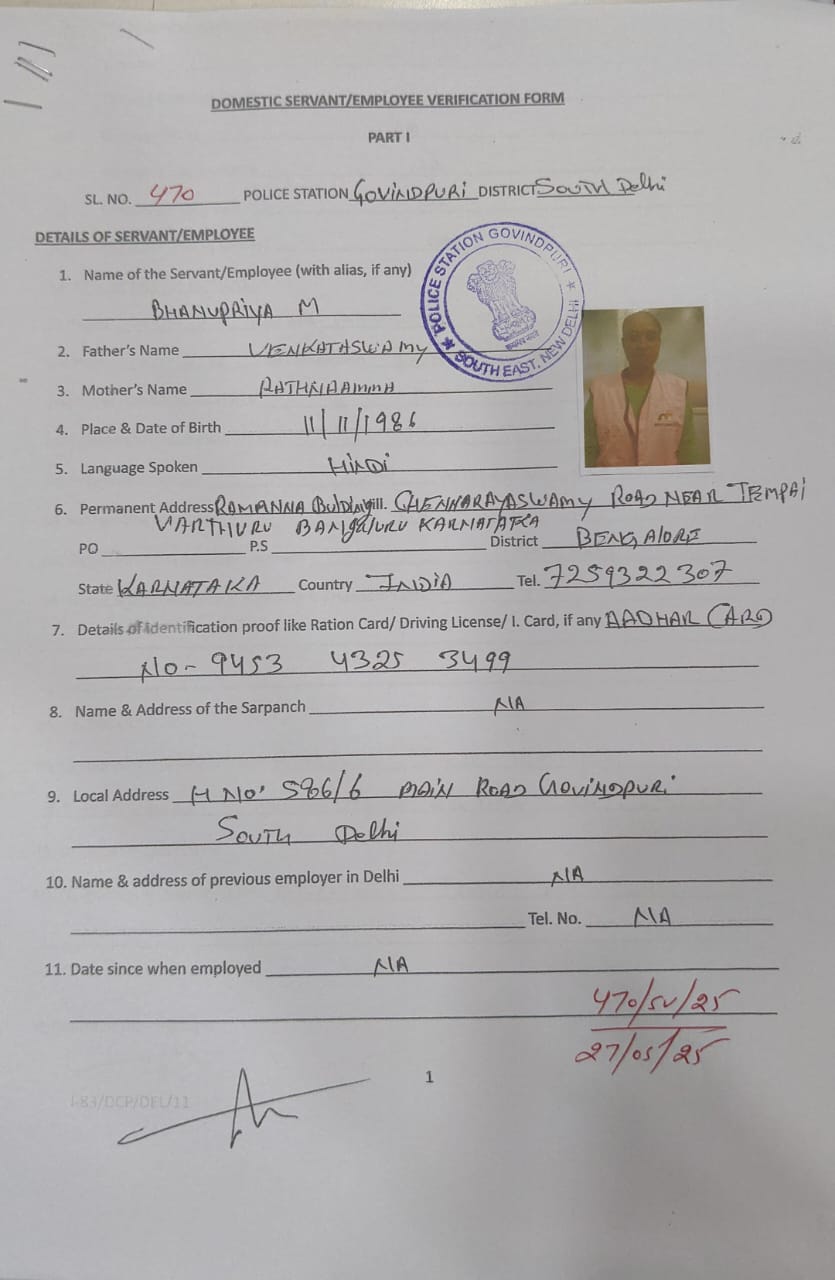 DOMESTIC SERVANT/EMPLOYEE VERIFICATION FORM
PART I
SL. NO. 470 POLICE STATION GOVINDPURI DISTRICT SOUTH Delhi
DETAILS OF SERVANT/EMPLOYEE
POLICE STATION GOVINDPURI
SOUTH EAST, NEW DELHI
1. Name of the Servant/Employee (with alias, if any)
BHANUPRIYA M
2. Father's Name VENKATASWAMY
3. Mother's Name
4. Place & Date of Birth 11/11/1986
5. Language Spoken HINDI
6. Permanent Address RAMANNA Building Vill. CHENNARAYASWAMY ROAD NEAR
VARTHURU BANGALURU KARNATAKA
PO P.S District BENGALORE
State KARNATAKA Country INDIA Tel. 7259322307
7. Details of identification proof like Ration Card/ Driving License/ I. Card, if any AADHAR CARD
NO - 9453 4325 3499
8. Name & Address of the Sarpanch NA
9. Local Address H NO. 586/6 MAIN ROAD GOVINDPURI
SOUTH Delhi
10. Name & address of previous employer in Delhi NA
Tel. No. NA
11. Date since when employed NA
470/SV/25
27/05/25
1
I-83/DCP/DEL/11